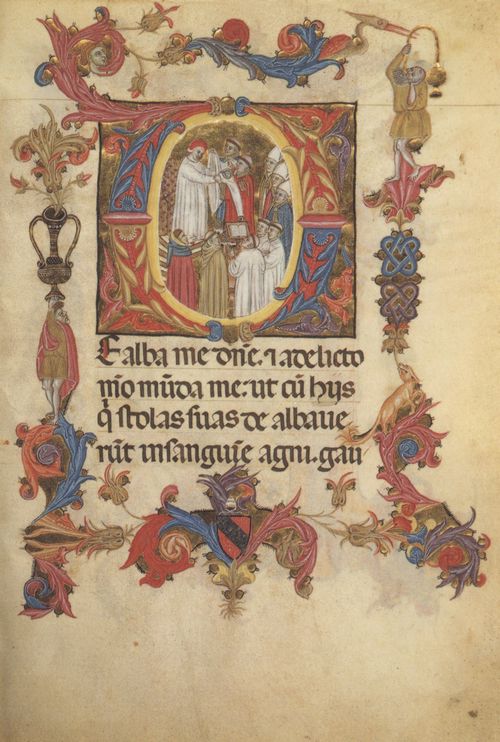 DEalba me dñe. ⁊ a delicto
m̃o mũda me. ut cũ hijs
qͥ stolas suas de albaue
rũt in sanguĩe agni. gau